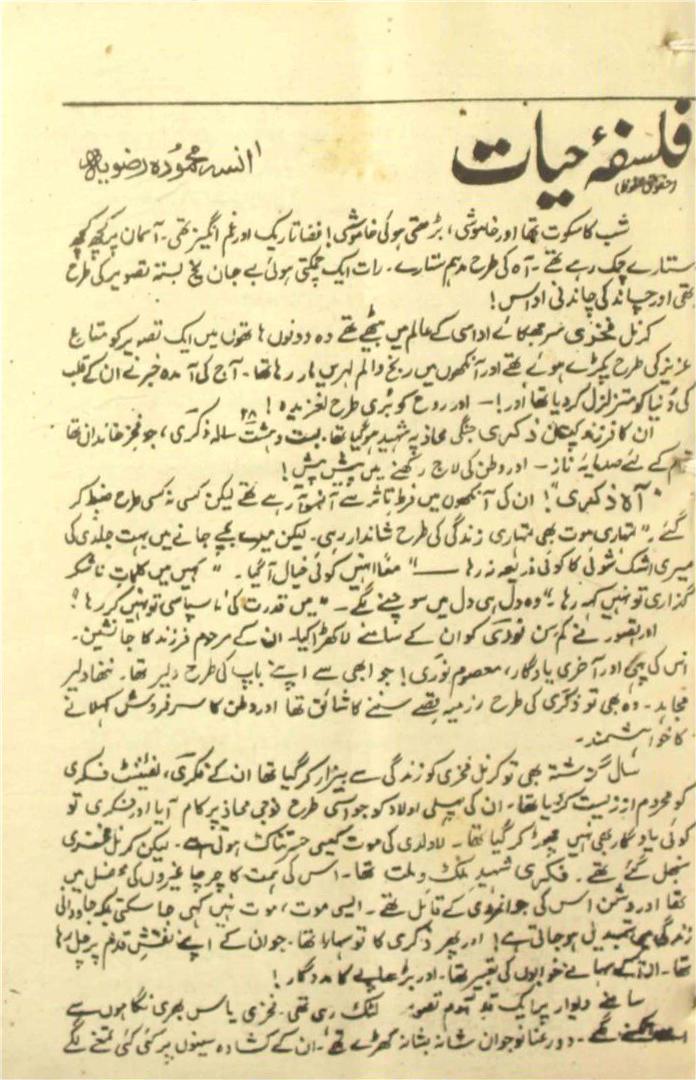 فلسفۂ حیات
(حقوق محفوظ)
انسہ محمودہ رضویہ
شب کا سکوت تھا اور خاموشی، بڑھتی ہوئی خاموشی! فضا تاریک اور غم انگیز تھی۔ آسمان پر کچھ کچھ
ستارے چمک رہے تھے۔ آہ کی طرح مدہم ستارے۔ رات ایک چمکتی ہوئی بے جان یخ بستہ تصویر کی طرح
تھی اور چاند کی چاندنی اداس!
کرنل فخری سر جھکائے اداسی کے عالم میں بیٹھے تھے وہ دونوں ہاتھوں میں ایک تصویر کو متاع
عزیز کی طرح پکڑے ہوئے تھے اور آنکھوں میں رنج و الم لہریں مار رہا تھا۔ آج کی آمدہ خبر نے ان کے قلب
کی دُنیا کو متزلزل کر دیا تھا اور! — اور روح کو بُری طرح لغزیدہ!
ان کا فرزند کپتان ذکری جنگی محاذ پہ شہید ہو گیا تھا۔ بست و ہشت ۲۸ سالہ ذکری، جو فخر خاندان تھا
قوم کے لئے صد مایہ ناز — اور وطن کی لاج رکھنے میں پیش پیش!
"آہ ذکری"! ان کی آنکھوں میں فرط تاثر سے آنسو آ رہے تھے لیکن کسی نہ کسی طرح ضبط کر
گئے۔ "تمہاری موت بھی تمہاری زندگی کی طرح شاندار رہی۔ لیکن میرے بچے جانے میں بہت جلدی کی
میری اشک شوئی کا کوئی ذریعہ نہ رہا —" معاً انہیں کوئی خیال آ گیا۔ "کہیں میں کلمات ناشکر
گذاری تو نہیں کہہ رہا۔" وہ دل ہی دل میں سوچنے لگے۔ "میں قدرت کی ناسپاسی تو نہیں کر رہا؟
اور تصور نے کم سن نوری کو ان کے سامنے لا کھڑا کیا۔ ان کے مرحوم فرزند کا جانشین۔
اس کی پہلی اور آخری یادگار، معصوم نوری! جو ابھی سے اپنے باپ کی طرح دلیر تھا۔ ننھا دلیر
مجاہد۔ وہ بھی تو ذکری کی طرح رزمیہ قصے سننے کا شائق تھا اور وطن کا سرفروش کہلانے
کا خواہشمند۔
سال گذشتہ بھی تو کرنل فخری کو زندگی سے بیزار کر گیا تھا ان کے فکری، لفٹیننٹ فکری
کو محروم از زیست کر دیا تھا۔ ان کی پہلی اولاد کو جو اسی طرح فوجی محاذ پر کام آیا اور فکری تو
کوئی یادگار بھی نہیں چھوڑ کر گیا تھا۔ لاولدی کی موت کیسی حسرتناک ہوتی ہے۔ لیکن کرنل فخری
سنبھل گئے تھے۔ فکری شہید ملک و ملت تھا۔ اس کی ہمت کا چرچا غیروں کی محفل میں
تھا اور دشمن اس کی جوانمردی کے قائل تھے۔ ایسی موت، موت نہیں کہی جا سکتی بلکہ جاودانی
زندگی میں تبدیل ہو جاتی ہے! اور پھر ذکری کا تو سہارا تھا۔ جو ان کے اپنے نقش قدم پر چل رہا
تھا۔ ان کے سہانے خوابوں کی تعبیر تھا۔ اور بڑھاپے کا مددگار!
سامنے دیوار پر ایک قد آدم تصویر لٹک رہی تھی۔ فخری یاس بھری نگاہوں سے
اسے تکنے لگے۔ دو رعنا نوجوان شانہ بشانہ کھڑے تھے۔ ان کے کشادہ سینوں پر کئی کئی تمغے لگے